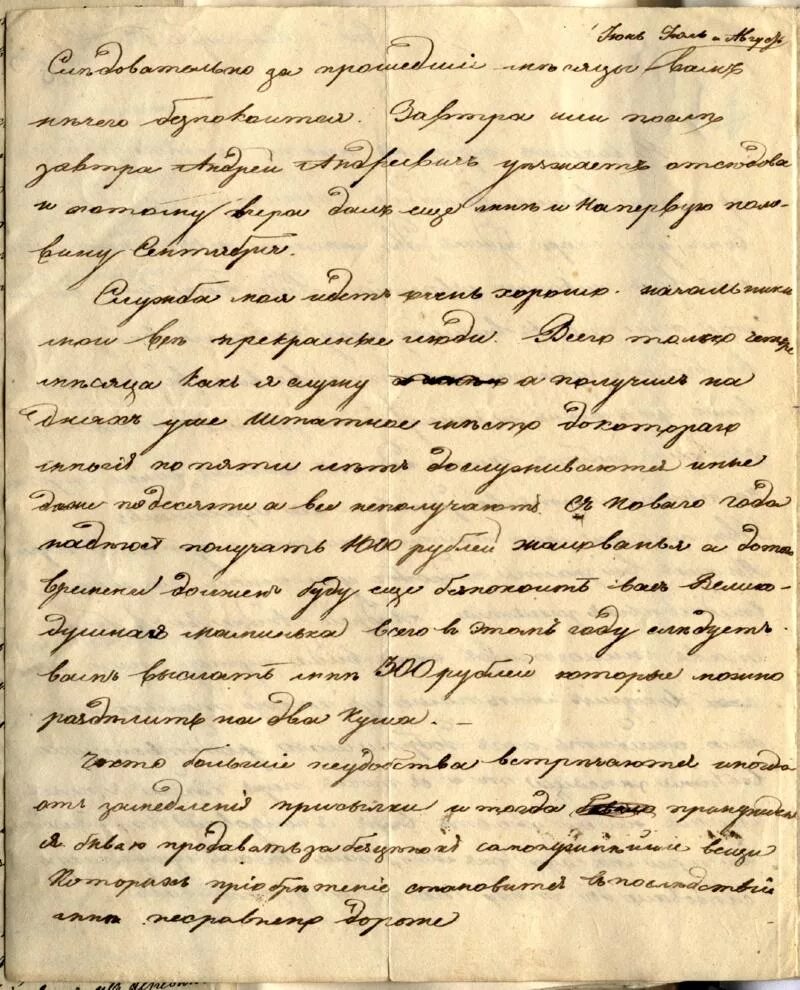 Іюнь Іюль и Августъ
Слѣдовательно за прошедшіе мѣсяцы Вамъ
нѣчего безпокоится. Завтра или послѣ
завтра Андрей Андреевичь уѣзжаетъ отсюдова
и потому вчера далъ еще мнѣ и на первую поло-
вину Сентября.
Служба моя идетъ очень хорошо. начальники
мои все прекрасные люди. Всего только четыре
мѣсяца какъ я служу а получилъ на
дняхъ уже Штатное мѣсто до котораго
многія по пяти лѣтъ дослуживаются иные
даже по десяти а все неполучаютъ. Съ Новаго года
надѣюсь получать 1000 рублей жалованья а дотого
времени долженъ буду еще безпокоить васъ Велико-
душная маминька всего в этомъ году слѣдуетъ
вамъ выслать мнѣ 500 рублей которые можно
раздѣлить на два куша. —
Часто большіе неудобства встрѣчаются иногда
отъ замедленія присылки и тогда принужден
я бываю продавать за безцѣнокъ самонужнѣйшіе вещи
которыхъ пріобрѣтеніе становится впослѣдствіи
мнѣ несравнено дороже